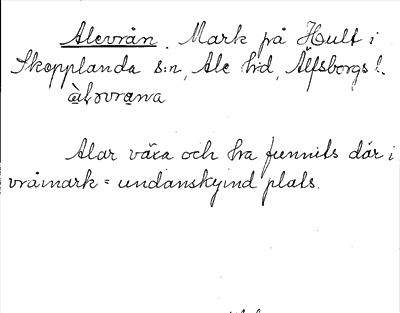 Alevrån. Mark på Hult i
Skepplanda s:n, Ale hd, Älfsborgs l.
Alar växa och ha funnits där i
vråmark = undanskymd plats.